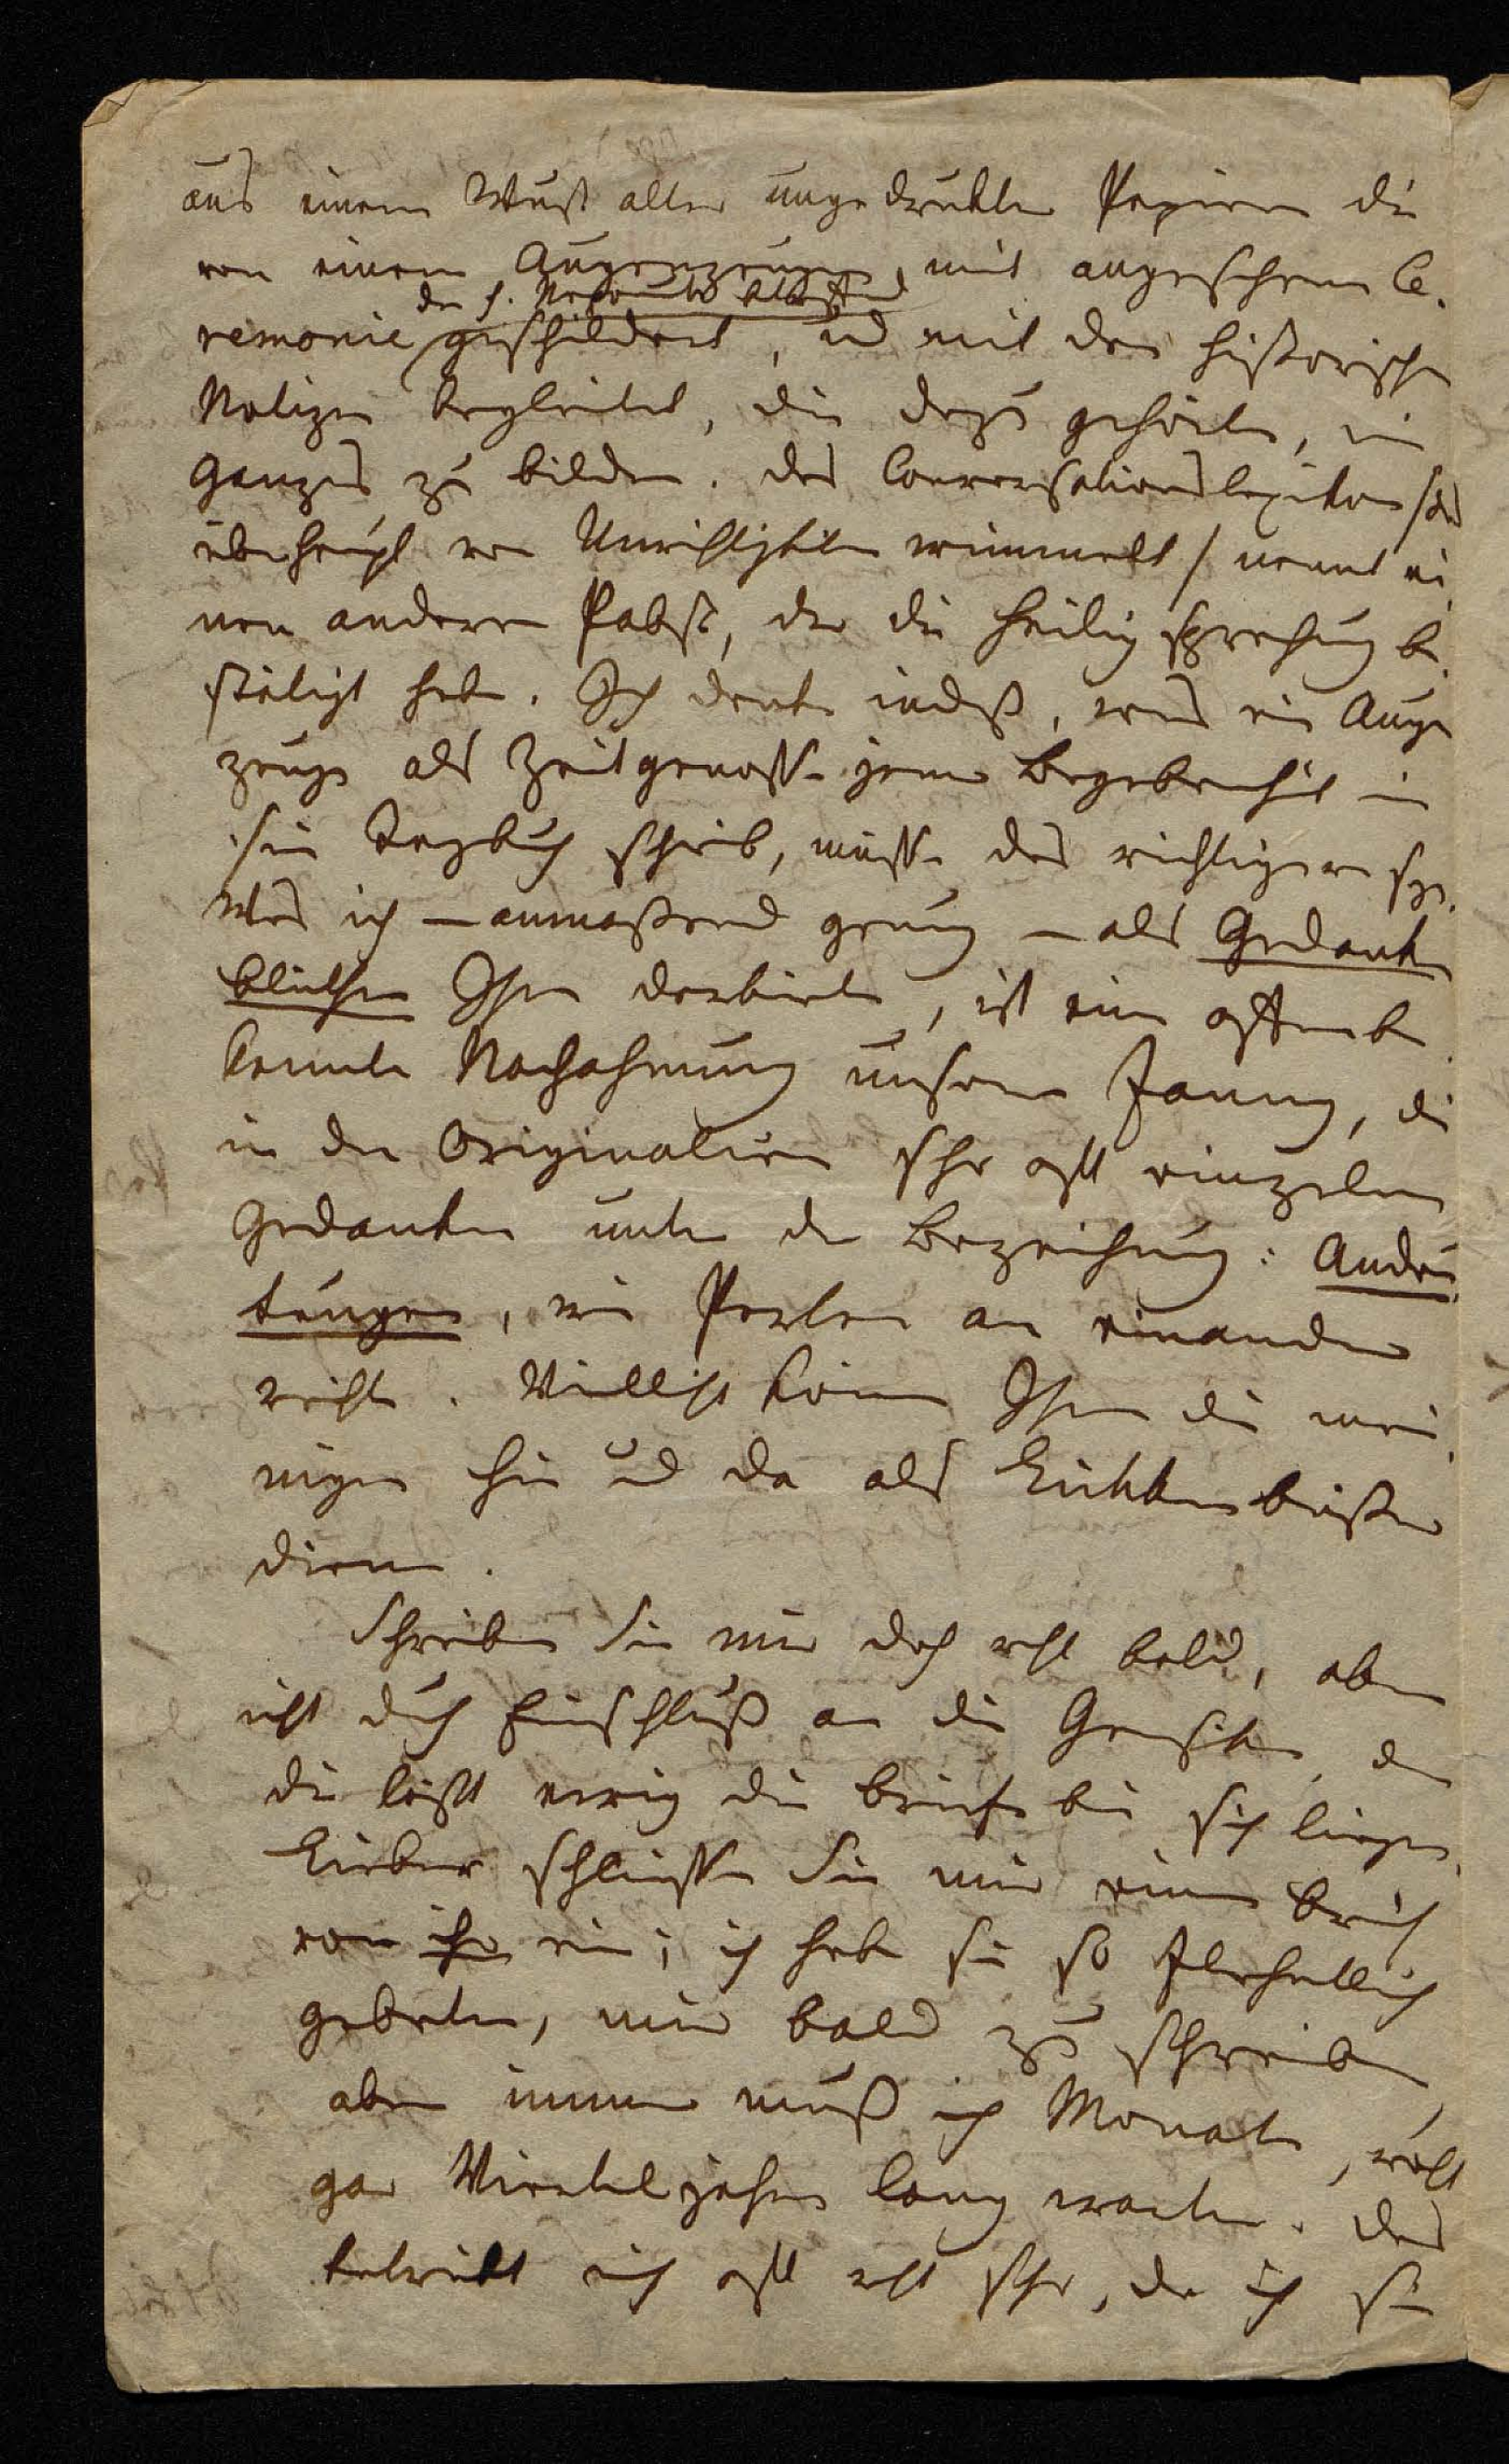 aus einem Wust alter ungedrukter Papiere die
von einem Augenzeugen, mit angesehene Ce-
der h. Nepomuk betreffend
remonie geschildert, und mit den historischen
Notizen begleitet, die dazu gehörten, ein
Ganzes zu bilden. Das Conversationslexikon /das
überhaupt von Unrichtigkeiten wimmelt/ nennt ei-
nen anderen Pabst, der die Heiligsprechung be-
stätigt habe. Ich denke indeß, was ein Augen
zeuge als Zeitgenosse jener Begebenheit in
sein Tagbuch schrieb, müsse das richtigere seyn.
Was ich – anmaßend genug – als Gedanken
blüthen Ihnen darbiete, ist eine offen be-
kannte Nachahmung unserer Fanny, die
in den Originalien sehr oft einzelne
Gedanken unter der Bezeichnung: Andeu-
tungen, wie Perlen an einander
reiht. Vielleicht können Ihnen die mei-
nigen hie und da als Lückenbüßer
dienen.
Schreiben Sie mir doch recht bald, aber
nicht durch Einschluß an die Gensike, denn
die läßt ewig die Briefe bei sich liegen.
Lieber schließen Sie mir einen Brief
von ihr ein; ich habe sie so flehentlich
gebeten, mir bald zu schreiben,
aber immer muß ich Monate, wohl
gar Vierteljahre lang warten. Das
betrübt mich oft recht sehr, da ich sie